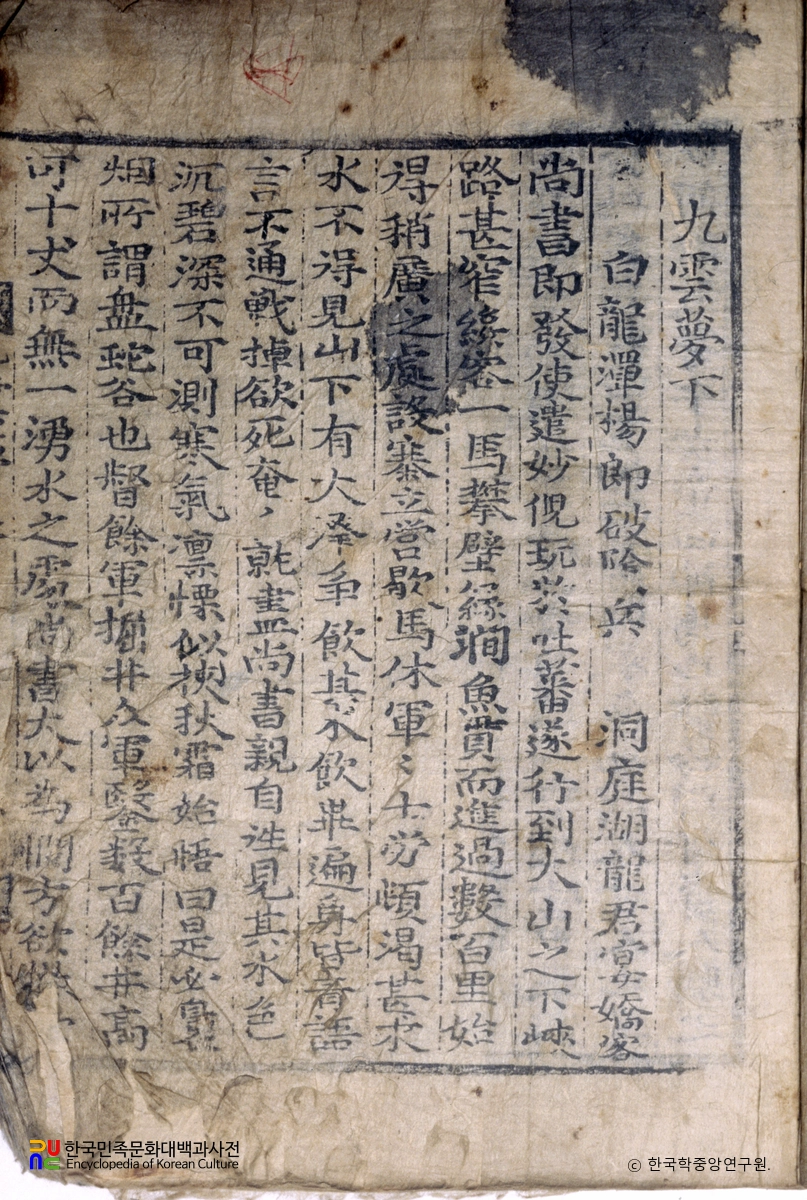 九雲夢下
白龍潭楊郎破陰兵 洞庭湖龍君宴嬌客
尚書即發使遣妙倪玩於吐蕃遂行到大山之下峽
路甚窄緣容一馬攀壁緣澗魚貫而進過數百里始
得稍廣之處設寨立營歇馬休軍〻士勞頓渴甚求
水不得見山下有大澤爭飮其水飮畢遍身皆靑語
言不通戰掉欲死奄〻就盡尚書親自往見其水色
沉碧深不可測寒氣凛慄似挾秋霜始悟曰是必
烟所謂盤蛇谷也督餘軍掘井衆軍鑿數百餘井高
可十丈而無一湧水之處尚書大以爲悶方欲
한국민족문화대백과사전
Encyclopedia of Korean Culture
© 한국학중앙연구원.